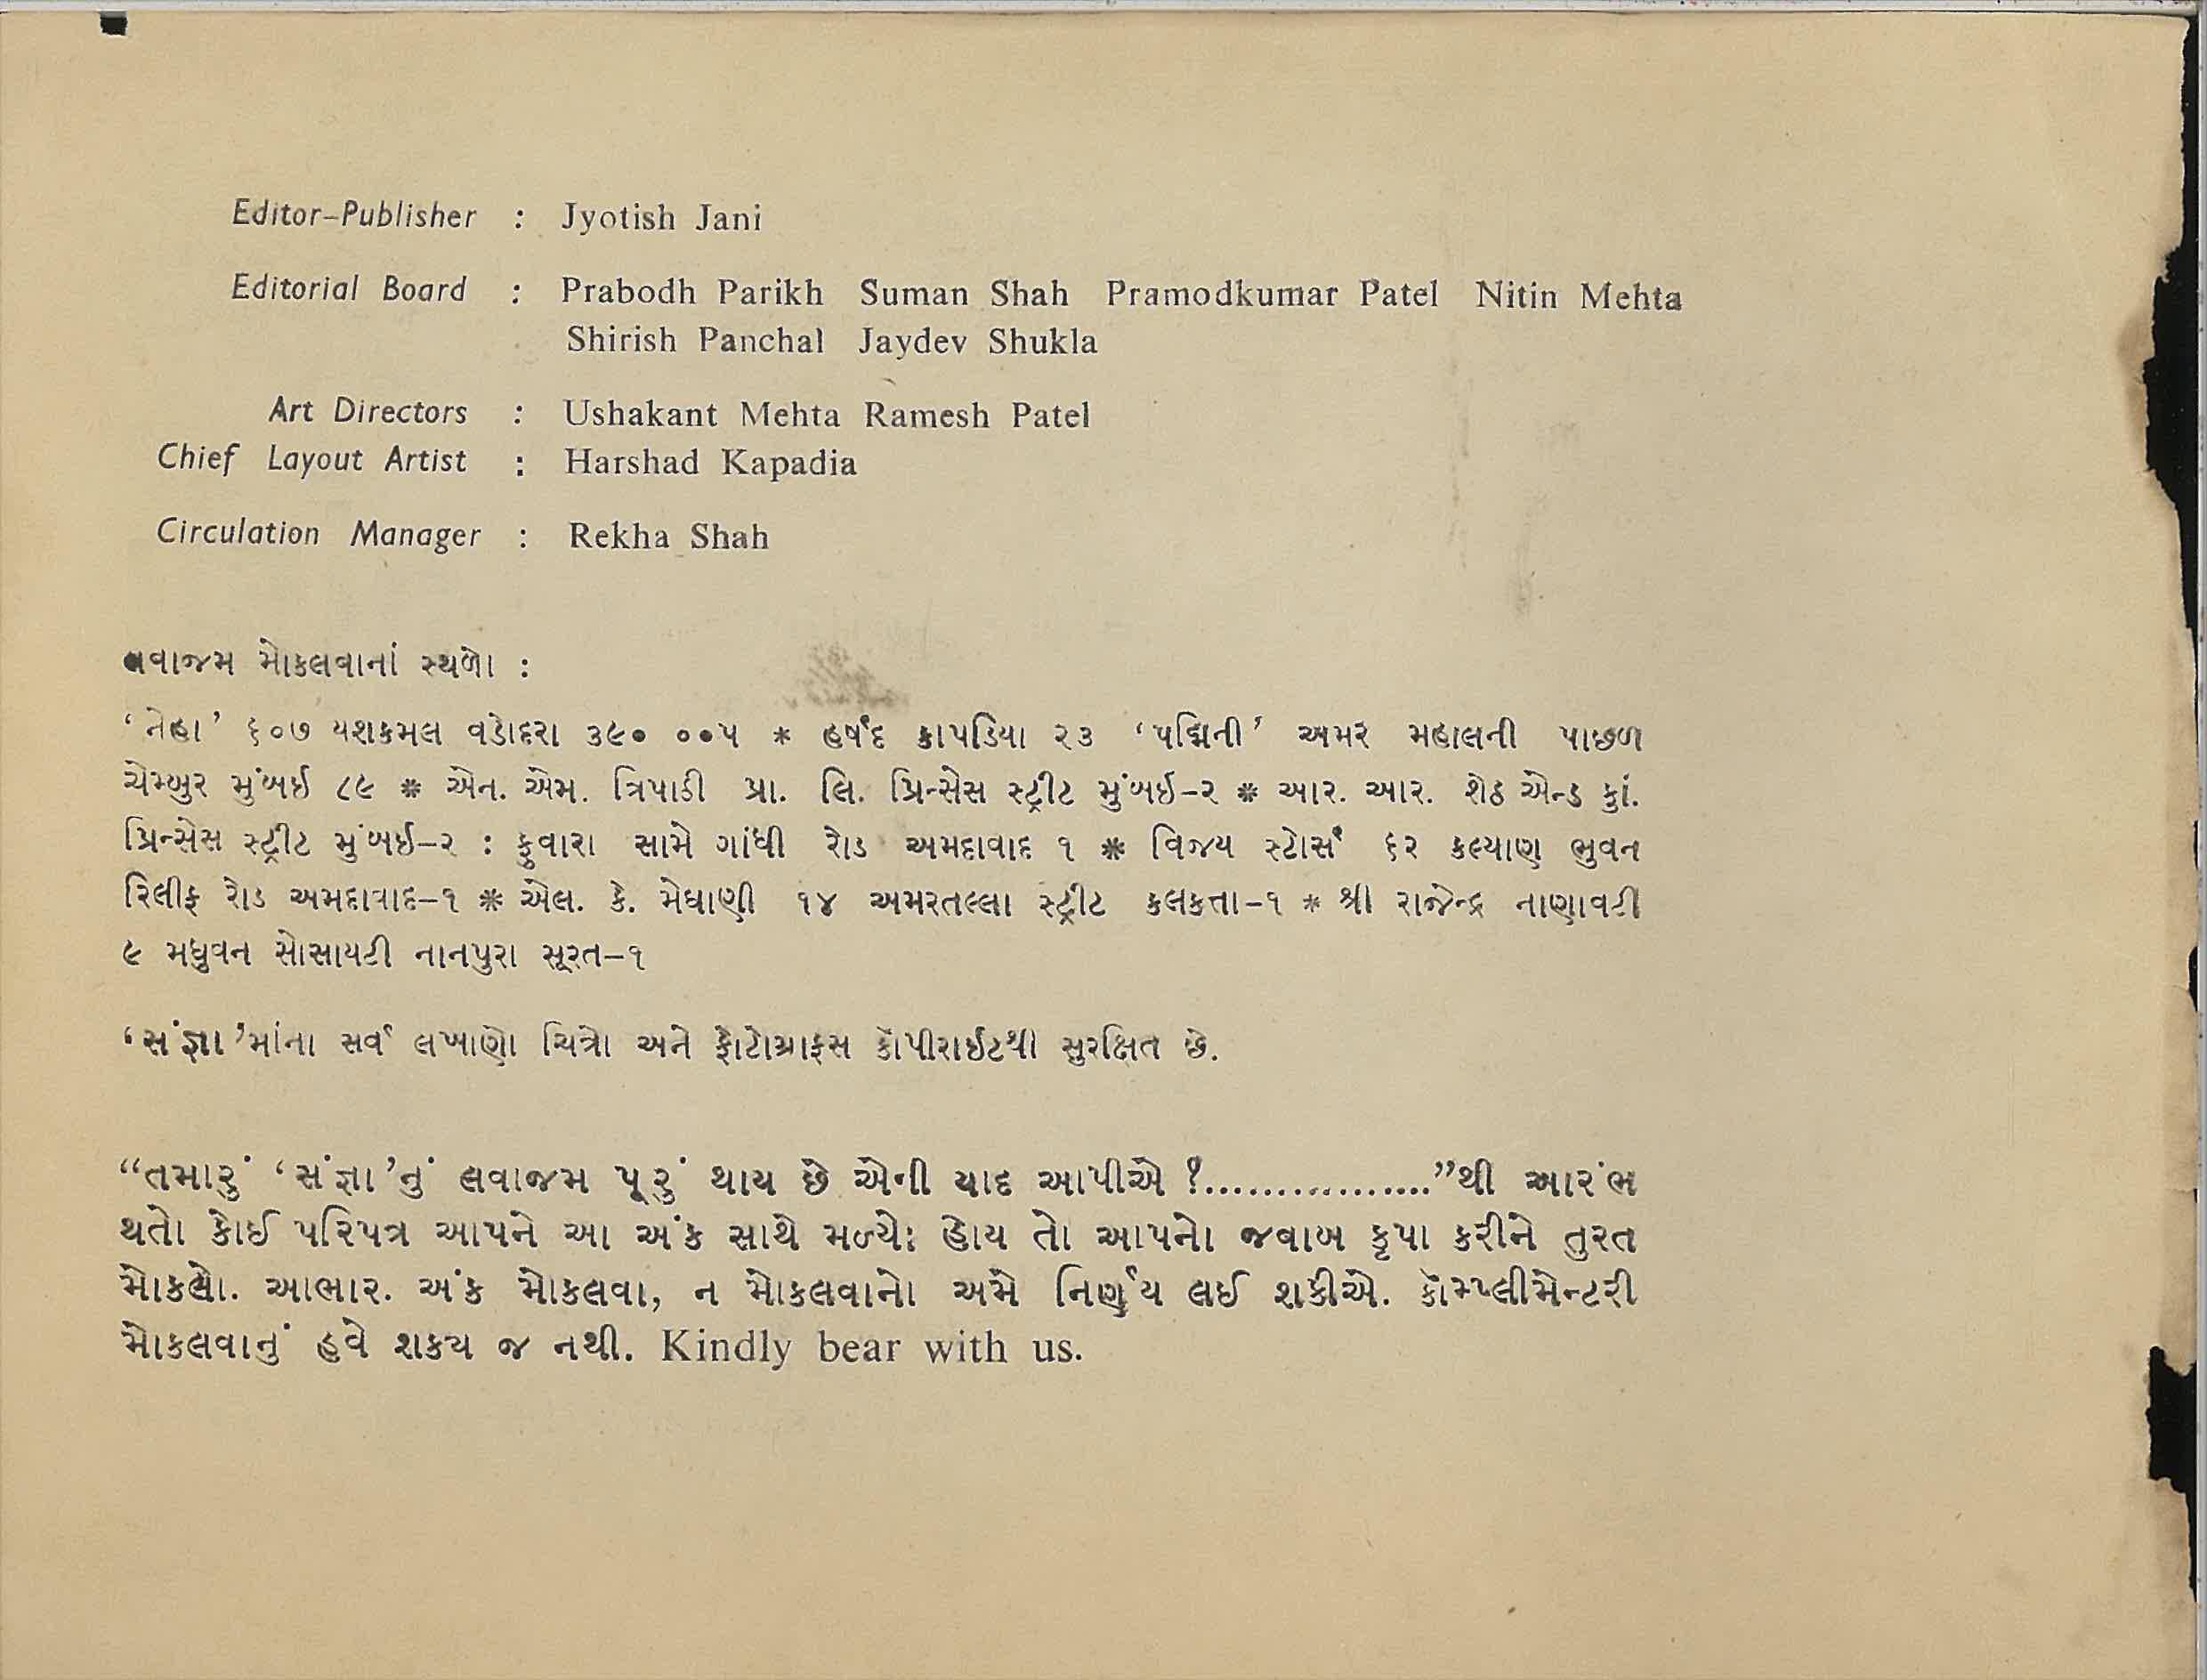 Editor-Publisher : Jyotish Jani
Editorial Board : Prabodh Parikh Suman Shah Pramodkumar Patel Nitin Mehta
Shirish Panchal Jaydev Shukla
Art Directors : Ushakant Mehta Ramesh Patel
Chief Layout Artist : Harshad Kapadia
Circulation Manager : Rekha Shah
લવાજમ મોકલવાનાં સ્થળો :
‘નેહા’ ૬૦૭ યશકમલ વડોદરા ૩૯૦ ૦૦૫ * હર્ષદ કાપડિયા ૨૩ ‘પદ્મિની’ અમર મહાલની પાછળ
ચેમ્બુર મુંબઇ ૮૯ * એન. એમ. ત્રિપાઠી પ્રા. લિ. પ્રિન્સેસ સ્ટ્રીટ મુંબઇ-૨ * આર. આર. શેઠ એન્ડ કું.
પ્રિન્સેસ સ્ટ્રીટ મુંબઇ-૨ : ફુવારા સામે ગાંધી રોડ અમદાવાદ ૧ * વિજય સ્ટોર્સ ૬૨ કલ્યાણ ભુવન
રિલીફ રોડ અમદાવાદ-૧ * એલ. કે. મેઘાણી ૧૪ અમરતલ્લા સ્ટ્રીટ કલકત્તા-૧ * શ્રી રાજેન્દ્ર નાણાવટી
૯ મધુવન સોસાયટી નાનપુરા સૂરત-૧
‘સંજ્ઞા’માંના સર્વ લખાણો ચિત્રો અને ફોટોગ્રાફસ કૉપીરાઈટથી સુરક્ષિત છે.
“તમારું ‘સંજ્ઞા’નું લવાજમ પૂરું થાય છે એની યાદ આપીએ ?................”થી આરંભ
થતો કોઈ પરિપત્ર આપને આ અંક સાથે મળ્યો હોય તો આપનો જવાબ કૃપા કરીને તુરત
મોકલો. આભાર. અંક મોકલવા, ન મોકલવાનો અમે નિર્ણય લઈ શકીએ. કૉમ્પ્લીમેન્ટરી
મોકલવાનું હવે શકય જ નથી. Kindly bear with us.